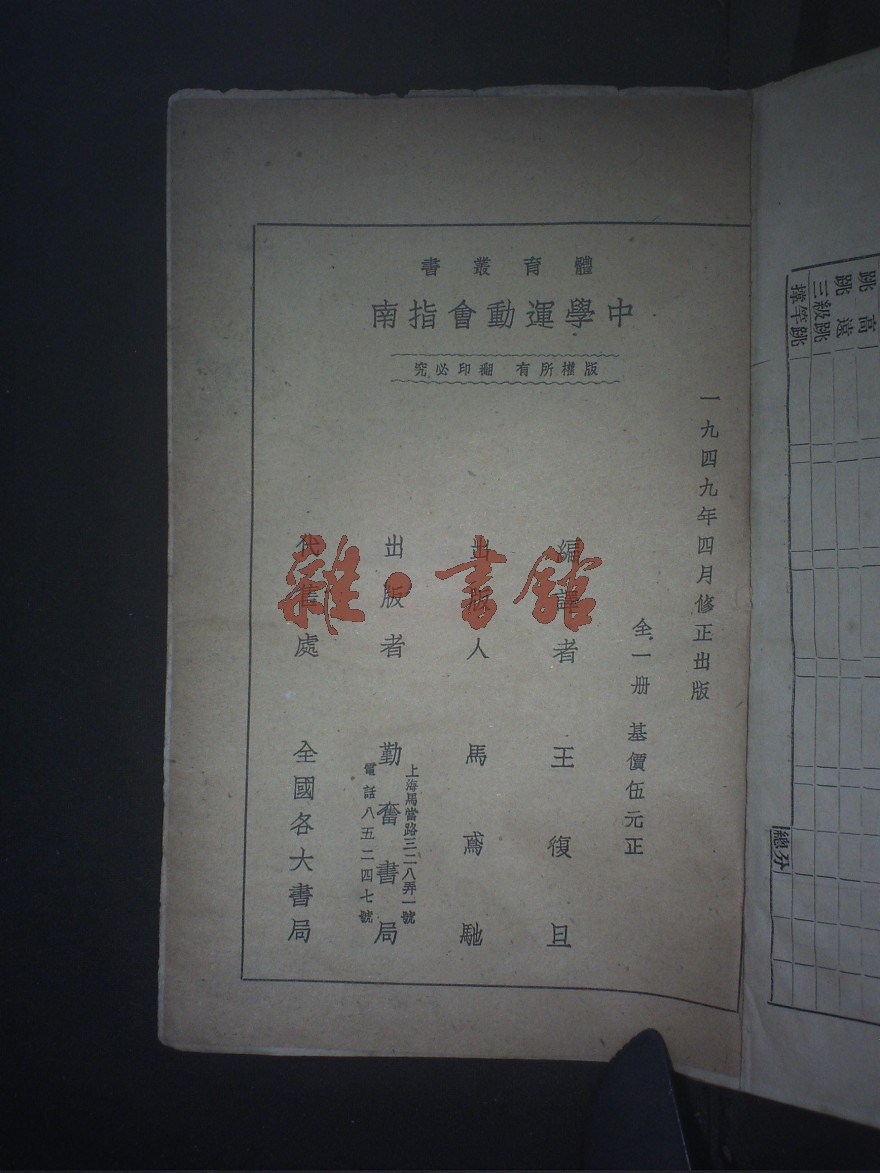 體育叢書
中學運動會指南
版權所有 翻印必究
一九四九年四月修正出版
全一册 基價伍元正
編譯者 王復旦
出版人 馬鳶馳
出版者 勤奮書局
上海馬當路三二八弄一號
電話八五二四七號
代售處 全國各大書局
雜·書館
跳高
跳遠
三級跳
撐竿跳
總分